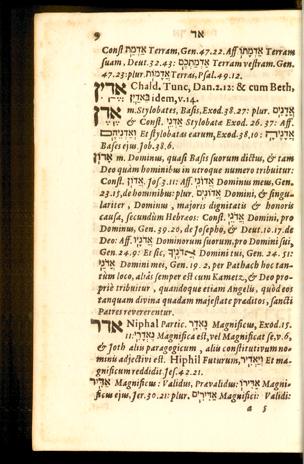 9 אד
Const אַדְמַת Terram, Gen. 47.22. Aff אַדְמָתוֹ Terram
suam, Deut. 32.43: אַדְמַתְכֶם Terram vestram. Gen.
47.23: plur. אֲדָמוֹת Terras, Psal. 49.12.
אֱדַיִן Chald. Tunc, Dan. 2.12: & cum Beth,
בֵּאדַיִן idem, v. 14.
אֶדֶן m. Stylobates, Basis, Exod. 38.27: plur. אֲדָנִים
& Const. אַדְנֵי Stylobata Exod. 26.37: Aff.
וְאַדְנֵיהֶם Et stylobatas earum, Exod. 38,10: אֲדָנֶיהָ
Bases ejus. Job. 38.6.
אָדוֹן m. Dominus, quasi Basis suorum dictus, & tam
Deo quàm hominibus in utroque numero tribuitur:
Const. אֲדוֹן Jos 3.11: Aff. אֲדוֹנִי Dominus meus, Gen.
23.15, de hominibus: plur. אֲדוֹנִים Domini, & singu-
lariter, Dominus, majoris dignitatis & honoris
causa, secundùm Hebræos: Const. אֲדֹנֵי Domini, pro
Dominus, Gen. 39.20, de Josepho, & Deut. 10.17. de
Deo: Aff. אֲדֹנָיו Dominorum suorum, pro Domini sui,
Gen. 24.9: Et sic, אֲדֹנֶיךָ Domini tui, Gen. 24.51:
אֲדֹנַי Domini mei, Gen. 19.2, per Pathach hoc tan-
tùm loco, aliàs semper est cum Kametz, & Deo pro-
priè tribuitur, quandoque etiam Angelis, quòd eos
tanquam divina quadam majestate præditos, sancti
Patres revererentur.
אדר Niphal Partic. נֶאְדָּר Magnificus, Exod. 15.
11: נֶאְדָּרִי Magnifica est, vel Magnificat se, v. 6,
& Joth aliis paragogicum, aliis constitutivum no-
minis adjectivi est. Hiphil Futurum, וְיַאְדִּיר Et ma-
gnificum reddidit Jes. 42.21.
אַדִּיר Magnificus: Validus, Prævalidus: אַדִּירוֹ Magni-
ficus ejus, Jer. 30.21: plur. אַדִּירִים Magnifici: Validi:
a 5